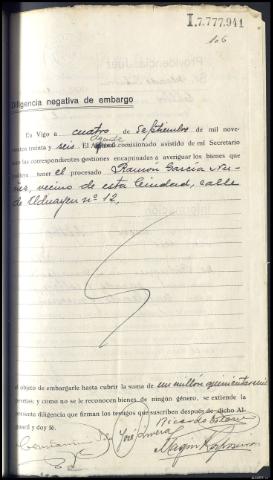 I.7.777.941
106
Diligencia negativa de embargo
En Vigo a cuatro de Septiembre de mil nove-
cientos treinta y seis. El Agente comisionado asistido de mi Secretario
las correspondientes gestiones encaminadas a averiguar los bienes que
tener el procesado Ramón García Nu-
ñez, vecino de esta Ciudad, calle
de Alduayen nº 12.
objeto de embargarle hasta cubrir la suma de un millón quinientas mil
pesetas, y como no se le reconocen bienes de ningún género, se extiende la
presente diligencia que firman los testigos que suscriben después de dicho Al-
guacil y doy fé.
Ricardo
José